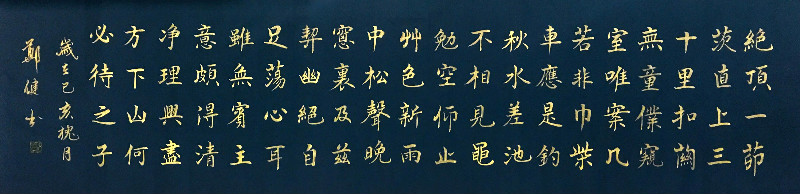 絕頂一茆
茨直上三
十里扣關
無童僕窺
室唯案几
若非巾柴
車應是釣
秋水差池
不相見黽
勉空仰止
艸色新雨
中松聲晚
窻裏及茲
契幽絕自
足蕩心耳
雖無賓主
意頗得清
净理興盡
方下山何
必待之子
歲在己亥槐月
鄭健书